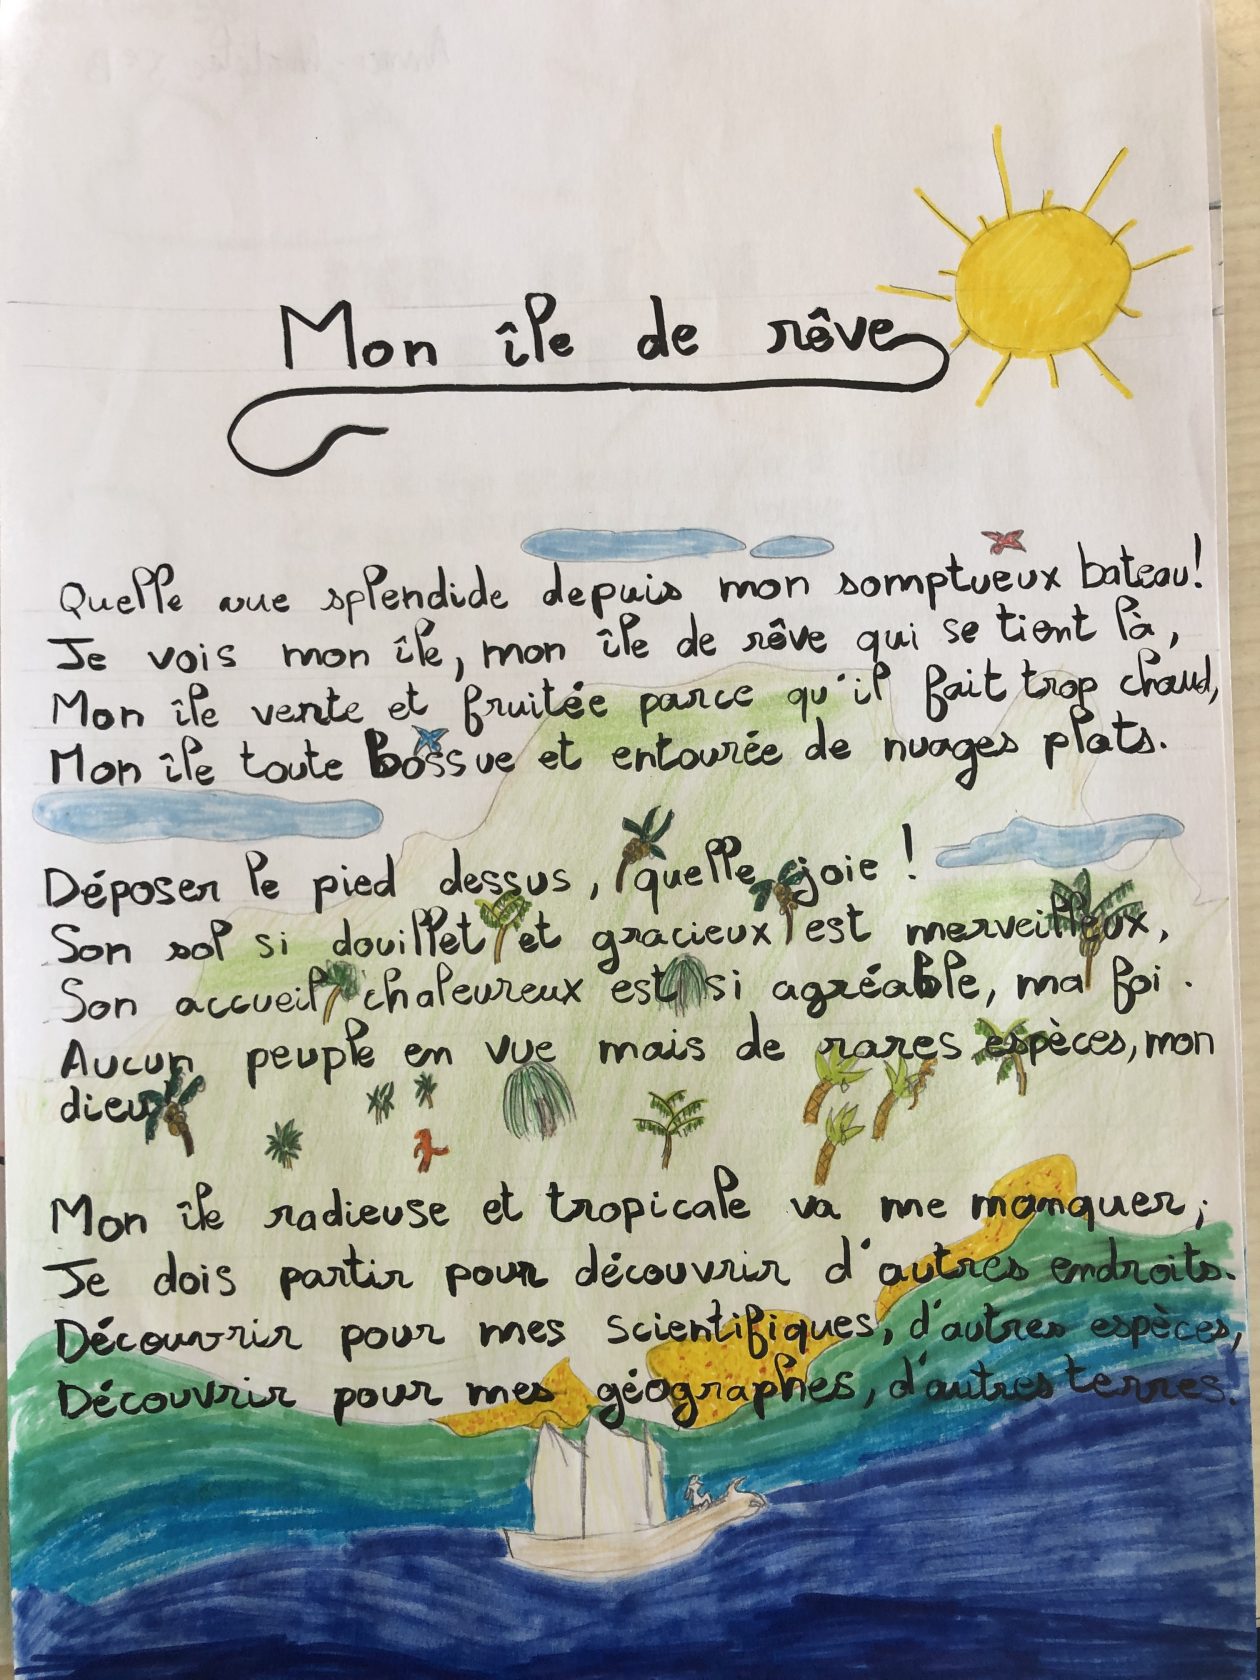 Mon île de rêve
Quelle vue splendide depuis mon somptueux bateau!
Je vois mon île, mon île de rêve qui se tient là,
Mon île verte et fruitée parce qu'il fait trop chaud,
Mon île toute bossue et entourée de nuages plats.
Déposer le pied dessus, quelle joie !
Son sol si douillet et gracieux est merveilleux,
Son accueil chaleureux est si agréable, ma foi.
Aucun peuple en vue mais de rares espèces, mon
dieu
Mon île radieuse et tropicale va me manquer;
Je dois partir pour découvrir d'autres endroits.
Découvrir pour mes scientifiques, d'autres espèces,
Découvrir pour mes géographes, d'autres terres.